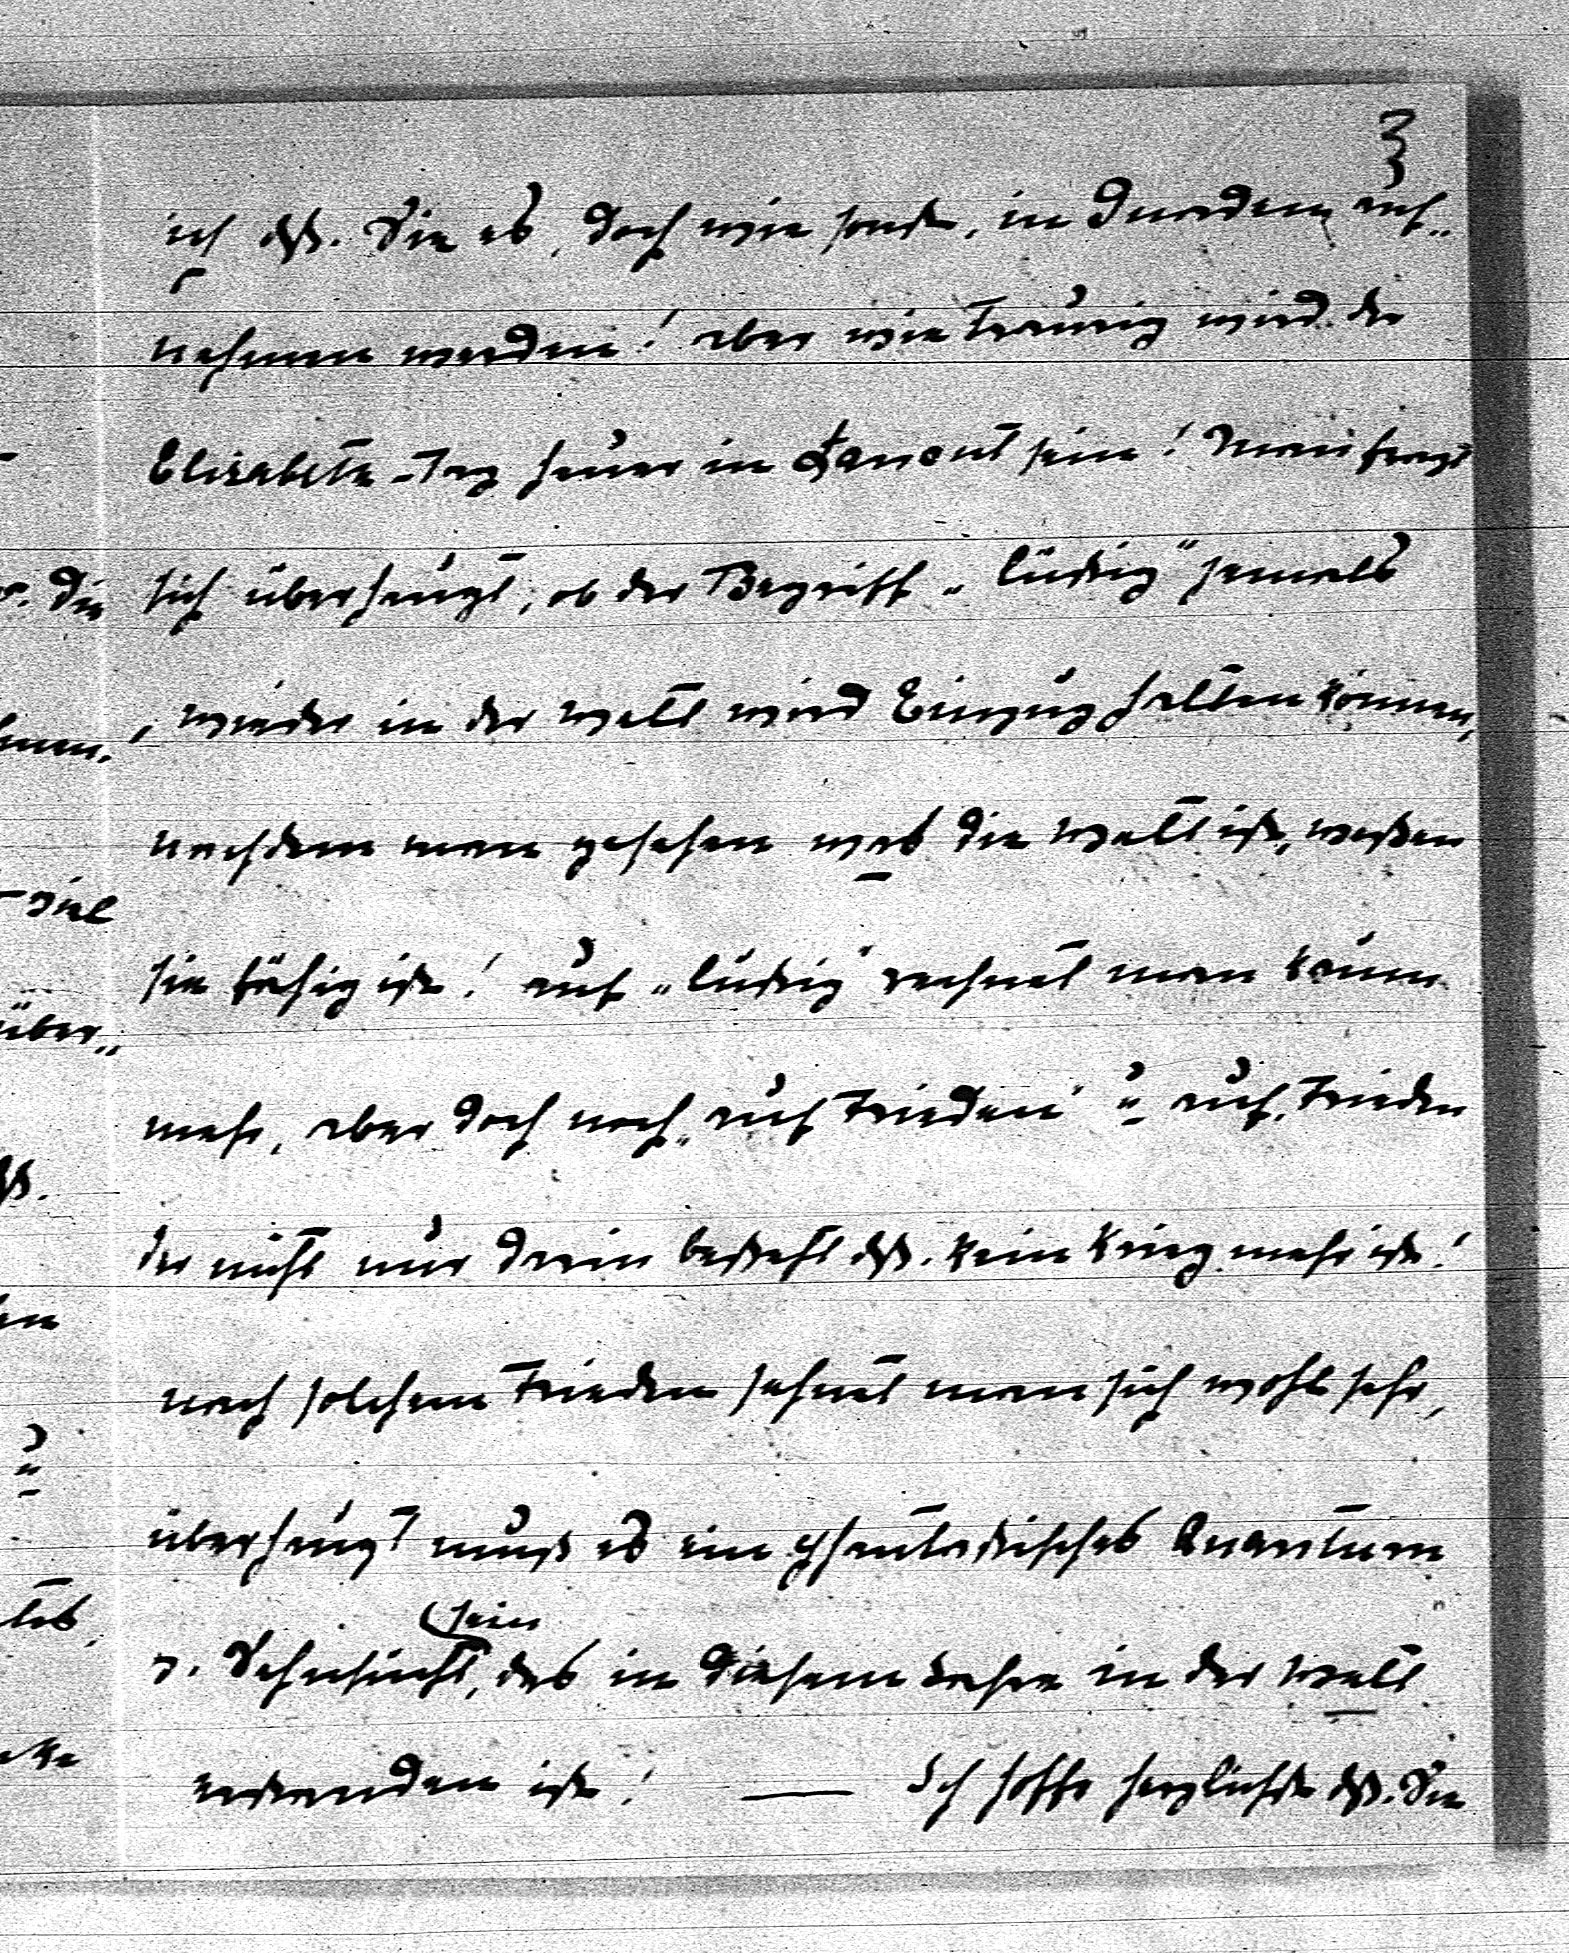 3
ich dß. Sie es, doch wie sonst, in Gnaden auf„
nehmen werden! aber wie traurig wird der
Elisabeth-Tag heuer in Lanout sein! Man fragt
sich überhaupt, ob der Begriff „lustig" jemals
wieder in der Welt wird Einzug halten können,
nachdem man gesehen was die Welt ist, wessen
sie fähig ist! auf „lustig" rechnet man kaum
mehr, aber doch noch „auf Frieden" u auf Frieden
der nicht nur darin besteht dß. kein Krieg mehr ist!
nach solchem Frieden sehnt man sich wohl sehr,
überhaupt muß es ein phantastisches Quantum
v. Sehnsucht sein, das in diesem Jahre in der Welt
erstanden ist! — Ich hoffe herzlichst dß. Sie
v. die
viel
über„
dß.
u